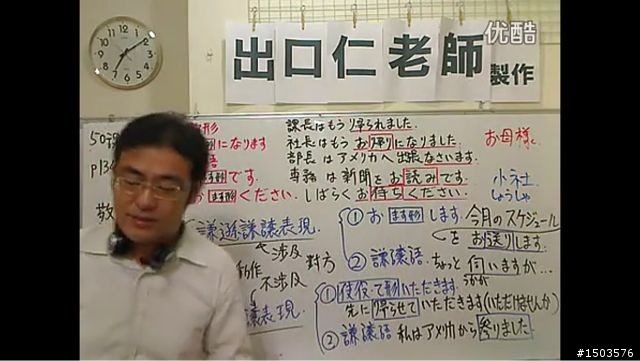 优酷
出口仁老師
製作
50課
形
課長はもう帰られました.
になります
社長はもう お帰りになりました.
お母様
部長は アメリカへ 出張なさいます.
です.
専務は 新聞を お読みです.
小社
しょうしゃ
ください.
しばらく お待ちください.
謙遜謙譲表現.
① お ます形 します.
今月の スケジュール
を お送りします.
涉及
動作
對方
不涉及
② 謙譲語. ちょっと 伺いますが…
うかが
① 使役て形いただきます.
先に 帰らせて いただきます(いただけませんか)
譲表現.
② 謙譲語 私は アメリカから 参りました.
#1503576